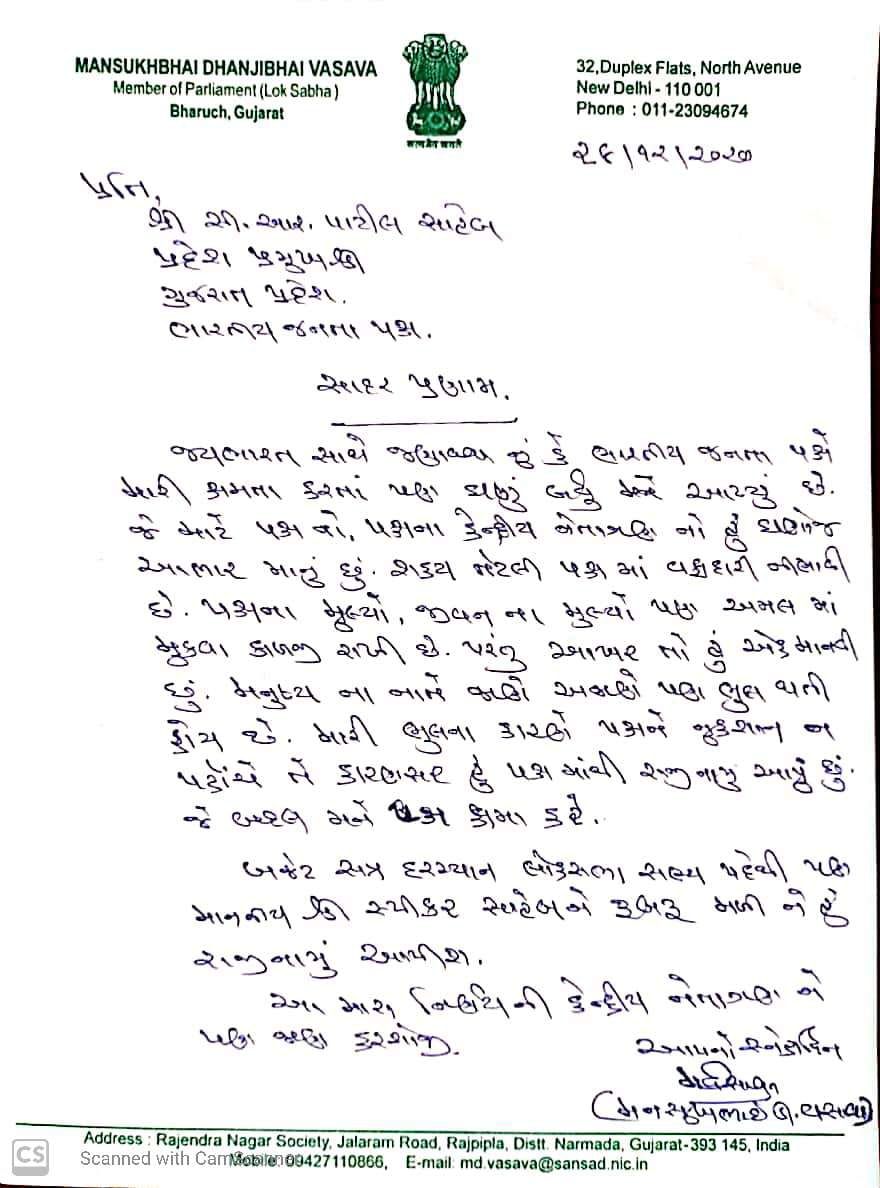 MANSUKHBHAI DHANJIBHAI VASAVA
Member of Parliament (Lok Sabha)
Bharuch, Gujarat
सत्यमेव जयते
32,Duplex Flats, North Avenue
New Delhi - 110 001
Phone : 011-23094674
૨૮/૧૨/૨૦૨૦
પ્રતિ,
શ્રી સી. આર. પાટીલ સાહેબ
પ્રદેશ પ્રમુખશ્રી
ગુજરાત પ્રદેશ.
ભારતીય જનતા પક્ષ.
સાદર પ્રણામ.
જયભારત સાથે જણાવવાનું કે ભારતીય જનતા પક્ષે
મારી ક્ષમતા કરતાં પણ ઘણું બધું મને આપ્યું છે.
જે માટે પક્ષ નો, પક્ષના કેન્દ્રીય નેતાગણ નો હું ઘણોજ
આભાર માનું છું. શક્ય તેટલી પક્ષ માં વફાદારી નીભાવી
છે. પક્ષના મુલ્યો, જીવન ના મુલ્યો પણ અમલ માં
મુકવા કાળજી રાખી છે. પરંતુ આખરે તો હું એક માનવી
છું. મનુષ્ય ના નાતે જાણે અજાણે પણ ભુલ થતી
હોય છે. મારી ભુલના કારણે પક્ષને નુકશાન ન
પહોંચે તે કારણસર હું પક્ષ માંથી રાજીનામુ આપું છું.
જે બદલ મને પક્ષ ક્ષમા કરે.
બજેટ સત્ર દરમ્યાન લોકસભા સભ્ય પદેથી પણ
માનનીય શ્રી સ્પીકર સાહેબને રૂબરૂ મળી ને હું
રાજીનામું આપીશ.
આ મારા નિર્ણયની કેન્દ્રીય નેતાગણ ને
પણ જાણ કરશોજી.
આપનો સ્નેહાધિન
(મનસુખભાઈ ધ. વસાવા)
Address : Rajendra Nagar Society, Jalaram Road, Rajpipla, Distt. Narmada, Gujarat-393 145, India
CS Scanned with CamScanner
Mobile: 09427110866, E-mail: md.vasava@sansad.nic.in